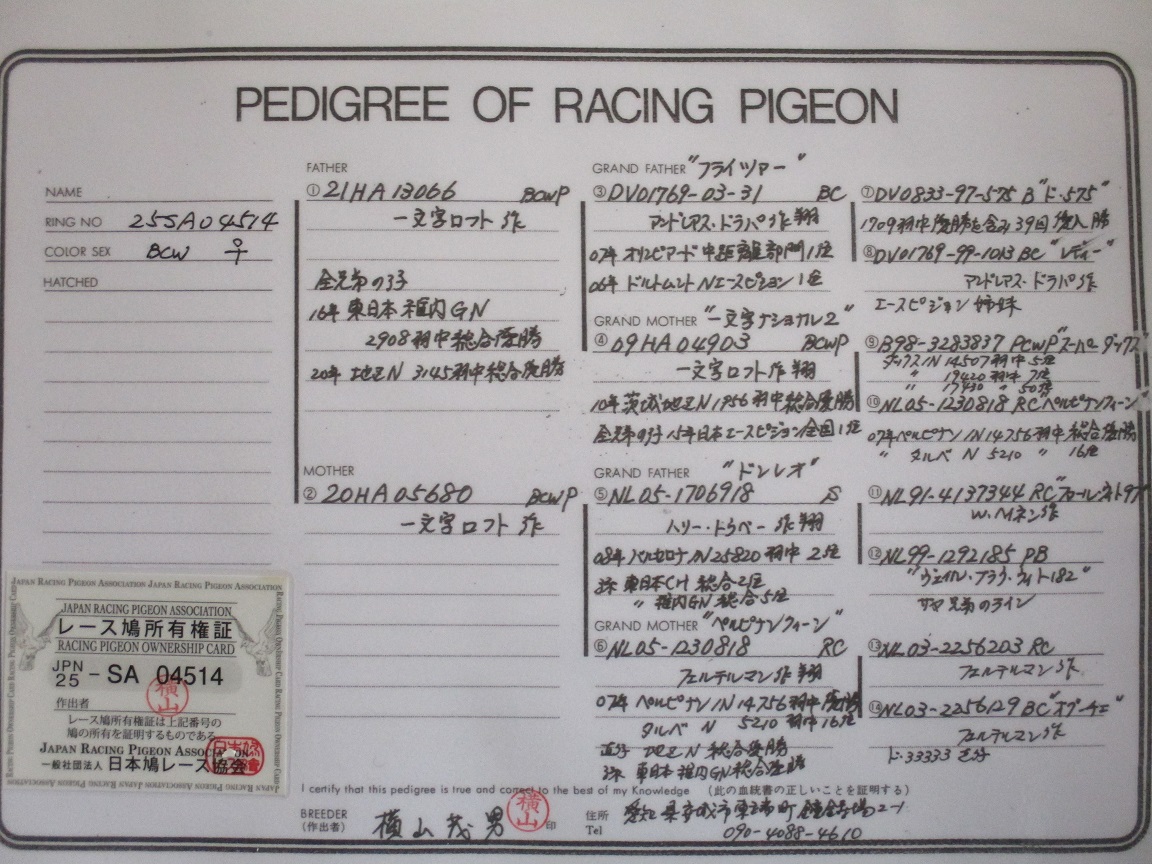 PEDIGREE OF RACING PIGEON
NAME
RING NO 25SA04514
COLOR SEX BCW ♀
HATCHED
FATHER
① 21HA13066 BCWP
一文字ロフト作
全兄弟の子
16年 東日本稚内GN
2908羽中総合優勝
20年 地区N 3145羽中総合優勝
MOTHER
② 20HA05680 BCWP
一文字ロフト作
GRAND FATHER "フライツァー"
③ DV01769-03-31 BC
アンドレアス・ドラパ作翔
07年 オリンピアード中距離部門1位
06年 ドルトムントNエースピジョン1位
GRAND MOTHER "一文字ナショナル2"
④ 09HA04903 BCWP
一文字ロフト作翔
10年 茨城地区N 1956羽中総合優勝
全兄弟の子 15年日本エースピジョン全国1位
GRAND FATHER "ドンレオ"
⑤ NL05-1706918 S
ハリー・トゥベー作翔
08年 バルセロナIN 25820羽中2位
孫 東日本CH 総合2位
〃 稚内GN 総合5位
GRAND MOTHER "ペルピナンクィーン"
⑥ NL05-1230818 RC
フェルテルマン作翔
07年 ペルピナンIN 14756羽中優勝
タルベ N 5210羽中16位
直子 地区N 総合優勝
孫 東日本稚内GN総合優勝
⑦ DV0833-97-575 B "ド・575"
1709羽中優勝を含み39回優入勝
⑧ DV01769-99-1013 BC "レディー"
アンドレアス・ドラパ作
エースピジョン姉妹
⑨ B98-3283837 PCWP "スーパーダックス"
ダックスIN 14507羽中5位
〃 19420羽中7位
〃 17430 〃 50位
⑩ NL05-1230818 RC "ペルピナンクィーン"
07年ペルピナンIN14756羽中総合優勝
〃 タルベ N 5210 〃 16位
⑪ NL91-4137344 RC
W.ペイネン作
⑫ NL99-1292185 PB
⑬ NL03-2256203 RC
フェルテルマン作
⑭ NL03-2256129 BC
フェルテルマン作
ド・33333
I certify that this pedigree is true and correct to the best of my Knowledge (此の血統書の正しいことを証明する)
BREEDER
(作出者) 横山茂男 横山 印
住所 愛知県安城市東端町
Tel 090-4088-4610
JAPAN RACING PIGEON ASSOCIATION JAPAN RACING PIGEON ASSOCIATION
JAPAN RACING PIGEON ASSOCIATION
レース鳩所有権証
RACING PIGEON OWNERSHIP CARD
JPN 25 - SA 04514
作出者 横山
レース鳩所有権証は上記番号の
鳩の所有を証明するものである
JAPAN RACING PIGEON ASSOCIATION
一般社団法人 日本鳩レース協会